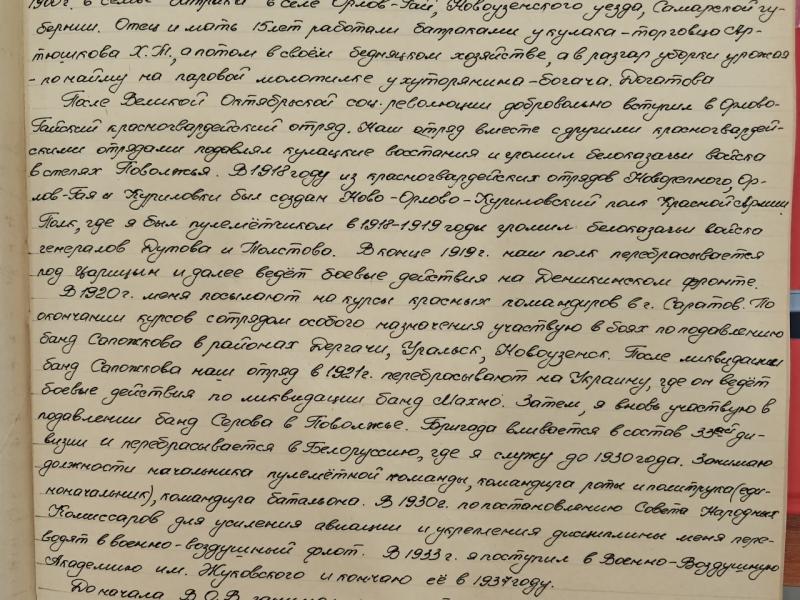 1900г. в семье батрака в селе Орлов-Гай, Новоузенского уезда, Самарской гу-
бернии. Отец и мать 15 лет работали батраками у кулака-торговца Ар-
тюшкова Х.Т., а потом в своём бедняцком хозяйстве, а в разгар уборки урожая
- по найму на паровой молотилке у хуторянина-богача. Догатова
После Великой Октябрьской соц. революции добровольно вступил в Орлово-
Гайский красногвардейский отряд. Наш отряд вместе с другими красногвардей-
скими отрядами подавлял кулацкие восстания и громил белоказачьи войска
в степях Поволжья. В 1918 году из красногвардейских отрядов Новорепного, Ор-
лов-Гая и Куриловки был создан Ново-Орлово-Куриловский полк Красной Армии.
Полк, где я был пулемётчиком в 1918-1919 годы громил белоказачьи войска
генералов Дутова и Толстово. В конце 1919г. наш полк перебрасывается
под Царицын и далее ведёт боевые действия на Деникинском фронте.
В 1920г. меня посылают на курсы красных командиров в г. Саратов. По
окончании курсов с отрядом особого назначения участвую в боях по подавлению
банд Сапожкова в районах Дергачи, Уральск, Новоузенск. После ликвидации
банд Сапожкова наш отряд в 1921г. перебрасывают на Украину, где он ведёт
боевые действия по ликвидации банд Махно. Затем, я вновь участвую в
подавлении банд Серова в Поволжье. Бригада вливается в состав 33ей ди-
визии и перебрасывается в Белоруссию, где я служу до 1930 года. Занимаю
должности начальника пулемётной команды, командира роты и политрука (еди-
ноначальник), командира батальона. В 1930г. по постановлению Совета Народных
Комиссаров для усиления авиации и укрепления дисциплины меня пере-
водят в военно-воздушный флот. В 1933г. я поступил в Военно-Воздушную
Академию им. Жуковского и кончаю её в 1937 году.
До начала В.О.В.